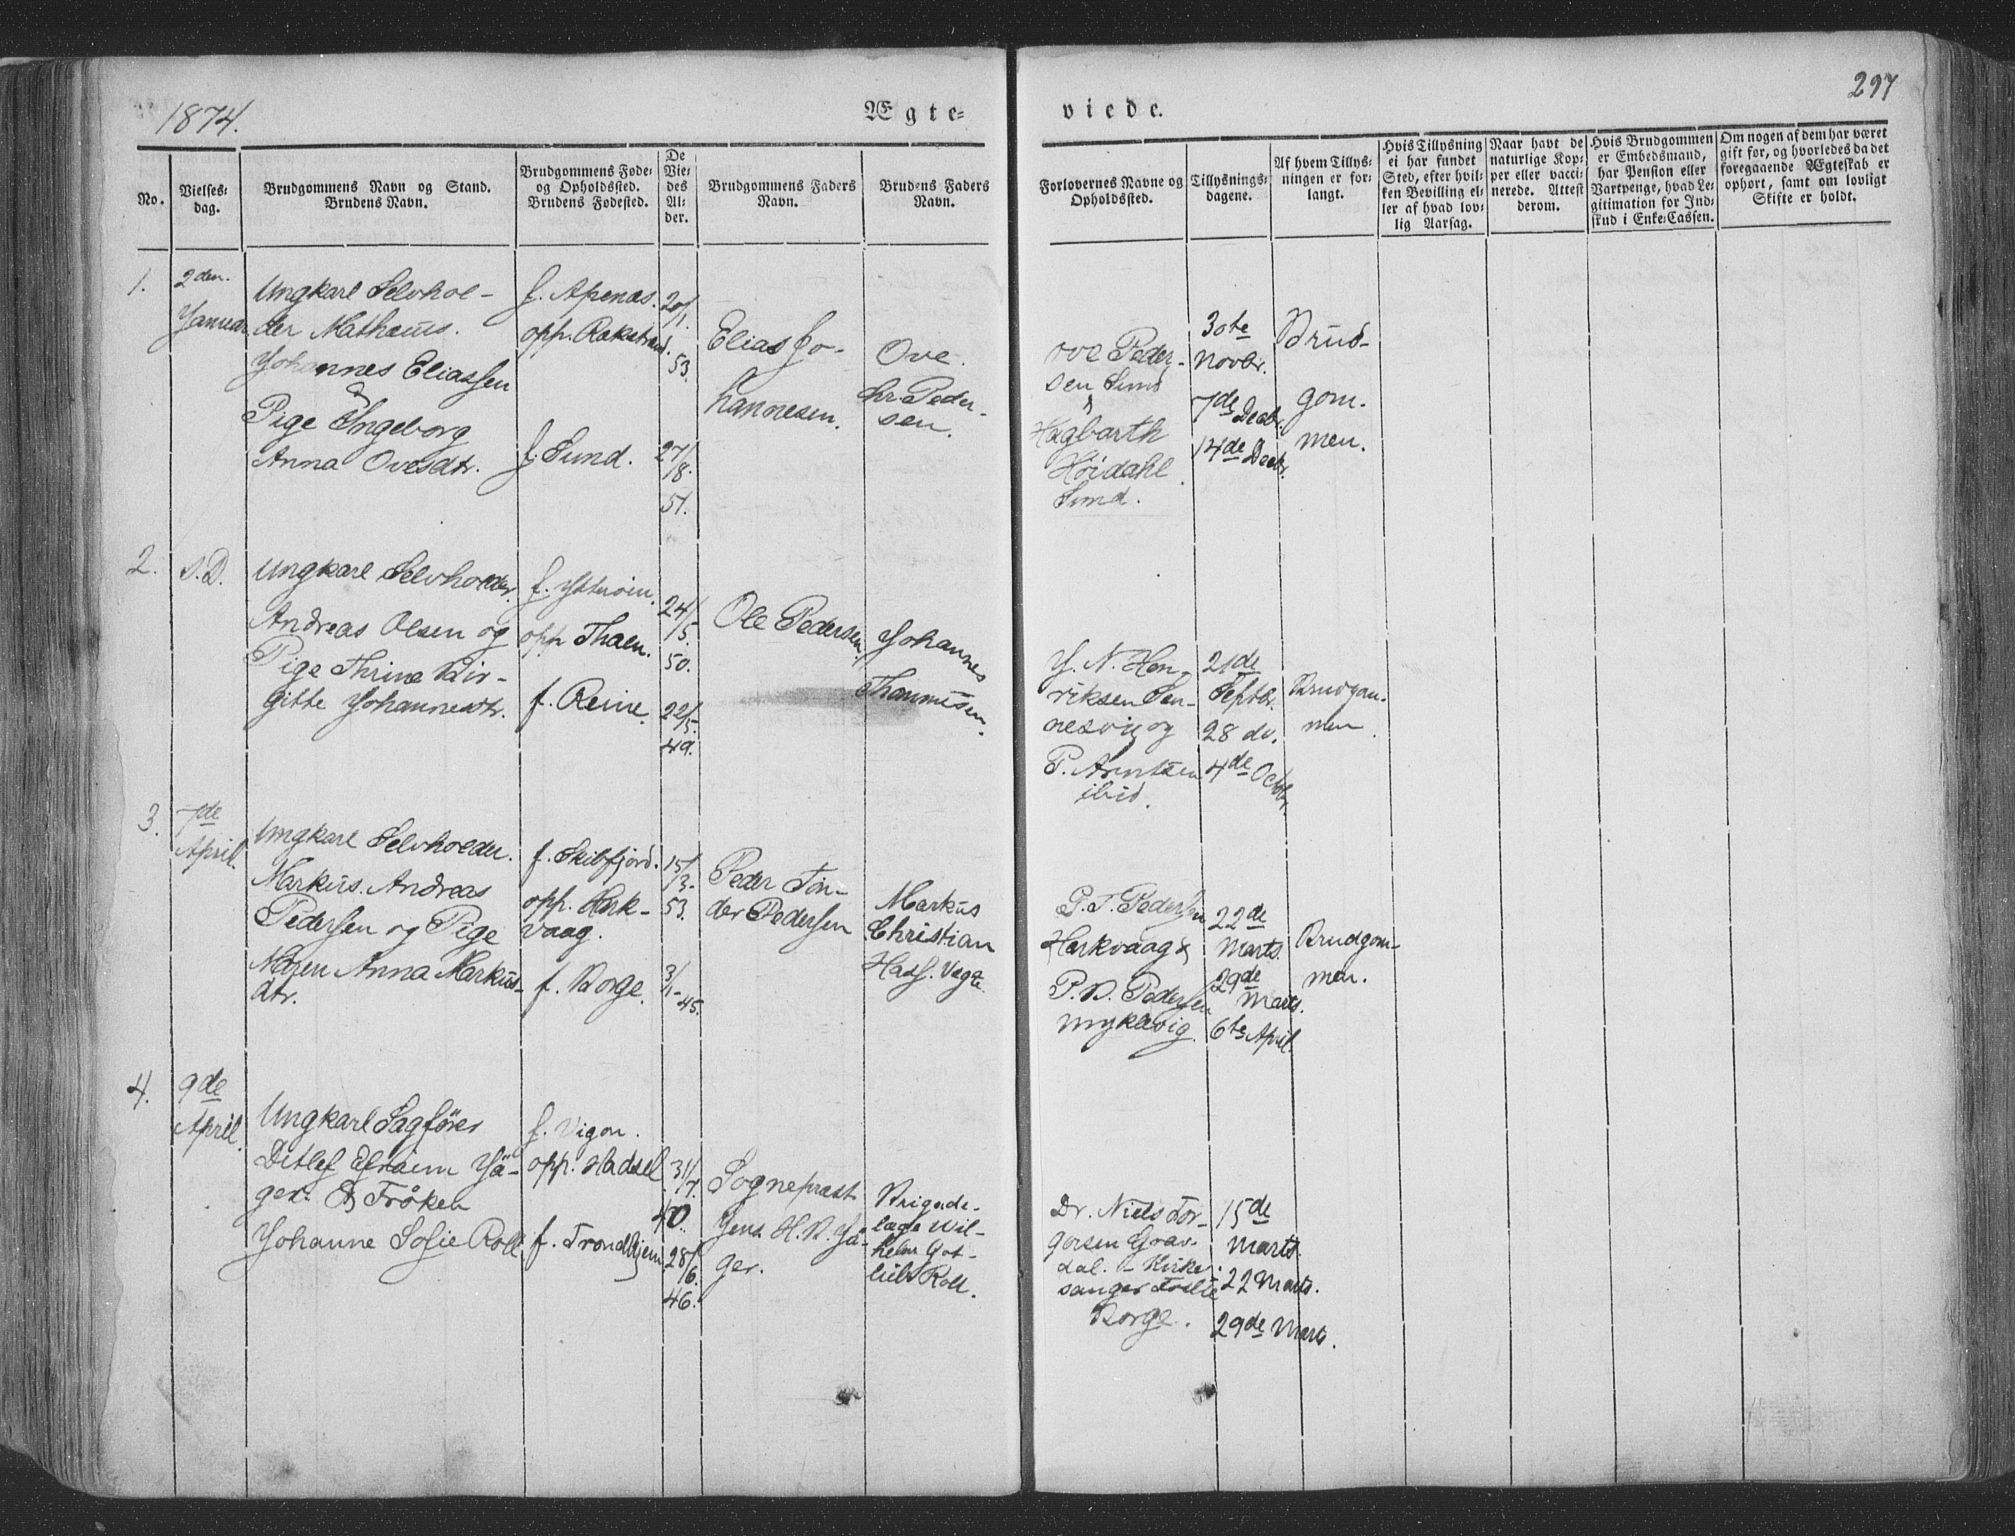 1874.
Ægte=
viede.
297
No.
Vielses=
dag.
Brudgommens Navn og Stand.
Brudens Navn.
Brudgommens Føde=
og Opholdssted.
Brudens Fødested.
De
Vie=
des
Al=
der.
Brudgommens Faders
Navn.
Brudens Faders
Navn.
Forlovernes Navne og
Opholdssted.
Tillysnings=
dagene.
Af hvem Tillys=
ningen er for=
langt.
Hvis Tillysning
ei har fundet
Sted, efter hvil=
ken Bevilling el=
ler af hvad lov=
lig Aarsag.
Naar havt de
naturlige Kop=
per eller vacci=
nerede. Attest
derom.
Hvis Brudgommen
er Embedsmand,
har Pension eller
Vartpenge, hvad Le=
gitimation for Ind=
skud i Enke=Cassen.
Om nogen af dem har været
gift før, og hvorledes da det
foregaaende Ægteskab er
ophørt, samt om lovligt
Skifte er holdt.
1.
2den
Januar
Ungkarl Selvhol-
der Mathæus
Johannes Eliassen
&
Pige Ingeborg
Anna Ovesdtr.
f. Apenæs.
opp. Rakstrand.
f. Sund.
20/1.
53.
27/8.
51.
Elias Jo-
hannesen.
Ove
Chr. Peder-
sen.
Ove Peder-
sen Sund
&
Hagbarth
Höidahl
Sund.
30te
Novbr.
7de Decbr.
14de Decbr.
Brud-
gom-
men.
2.
s. D.
Ungkarl Selvholder
Andreas Olsen og
Pige Thrine Bir-
gitte Johannesdtr.
f. Ytteröien.
opp. Thaen.
f. Reine.
24/5.
50.
22/5.
49.
Ole Pedersen.
Johannes
J. N. Hen-
riksen Sen-
nesvig og
P. Arntzen
ibid.
21de
Septbr.
28 do.
4de Octbr.
Brudgom-
men.
3.
7de
April.
Ungkarl Selvholder
Markus Andreas
Pedersen og Pige
Maren Anna Markus-
dtr.
f. Skibfjord.
opp. Hark-
vaag.
f. Borge.
15/3.
53.
3/1-
45.
Peder Tön-
der Pedersen
Markus
Christian
Hass. Vagte.
P. T. Pedersen
Harkvaag &
P. D. Pedersen
Myklevig.
22de
Marts.
29de
Marts.
6te April.
Brudgom-
men.
4.
9de
April.
Ungkarl Sagförer
Ditlef Efraim Jä-
ger & Fröken
Johanne Sofie Roll
f. Vigön.
opp. Hadsel
f. Trondhjem
31/7.
40.
28/6.
46.
Sogneprest
Jens H. B. Jä-
ger.
Brigade-
læge Wil-
helm Got-
lieb Roll.
Dr. Niels Tor-
gersen Grav-
dal. - Kirke-
sanger
Borge.
15de
Marts.
22 Marts.
29de Marts.